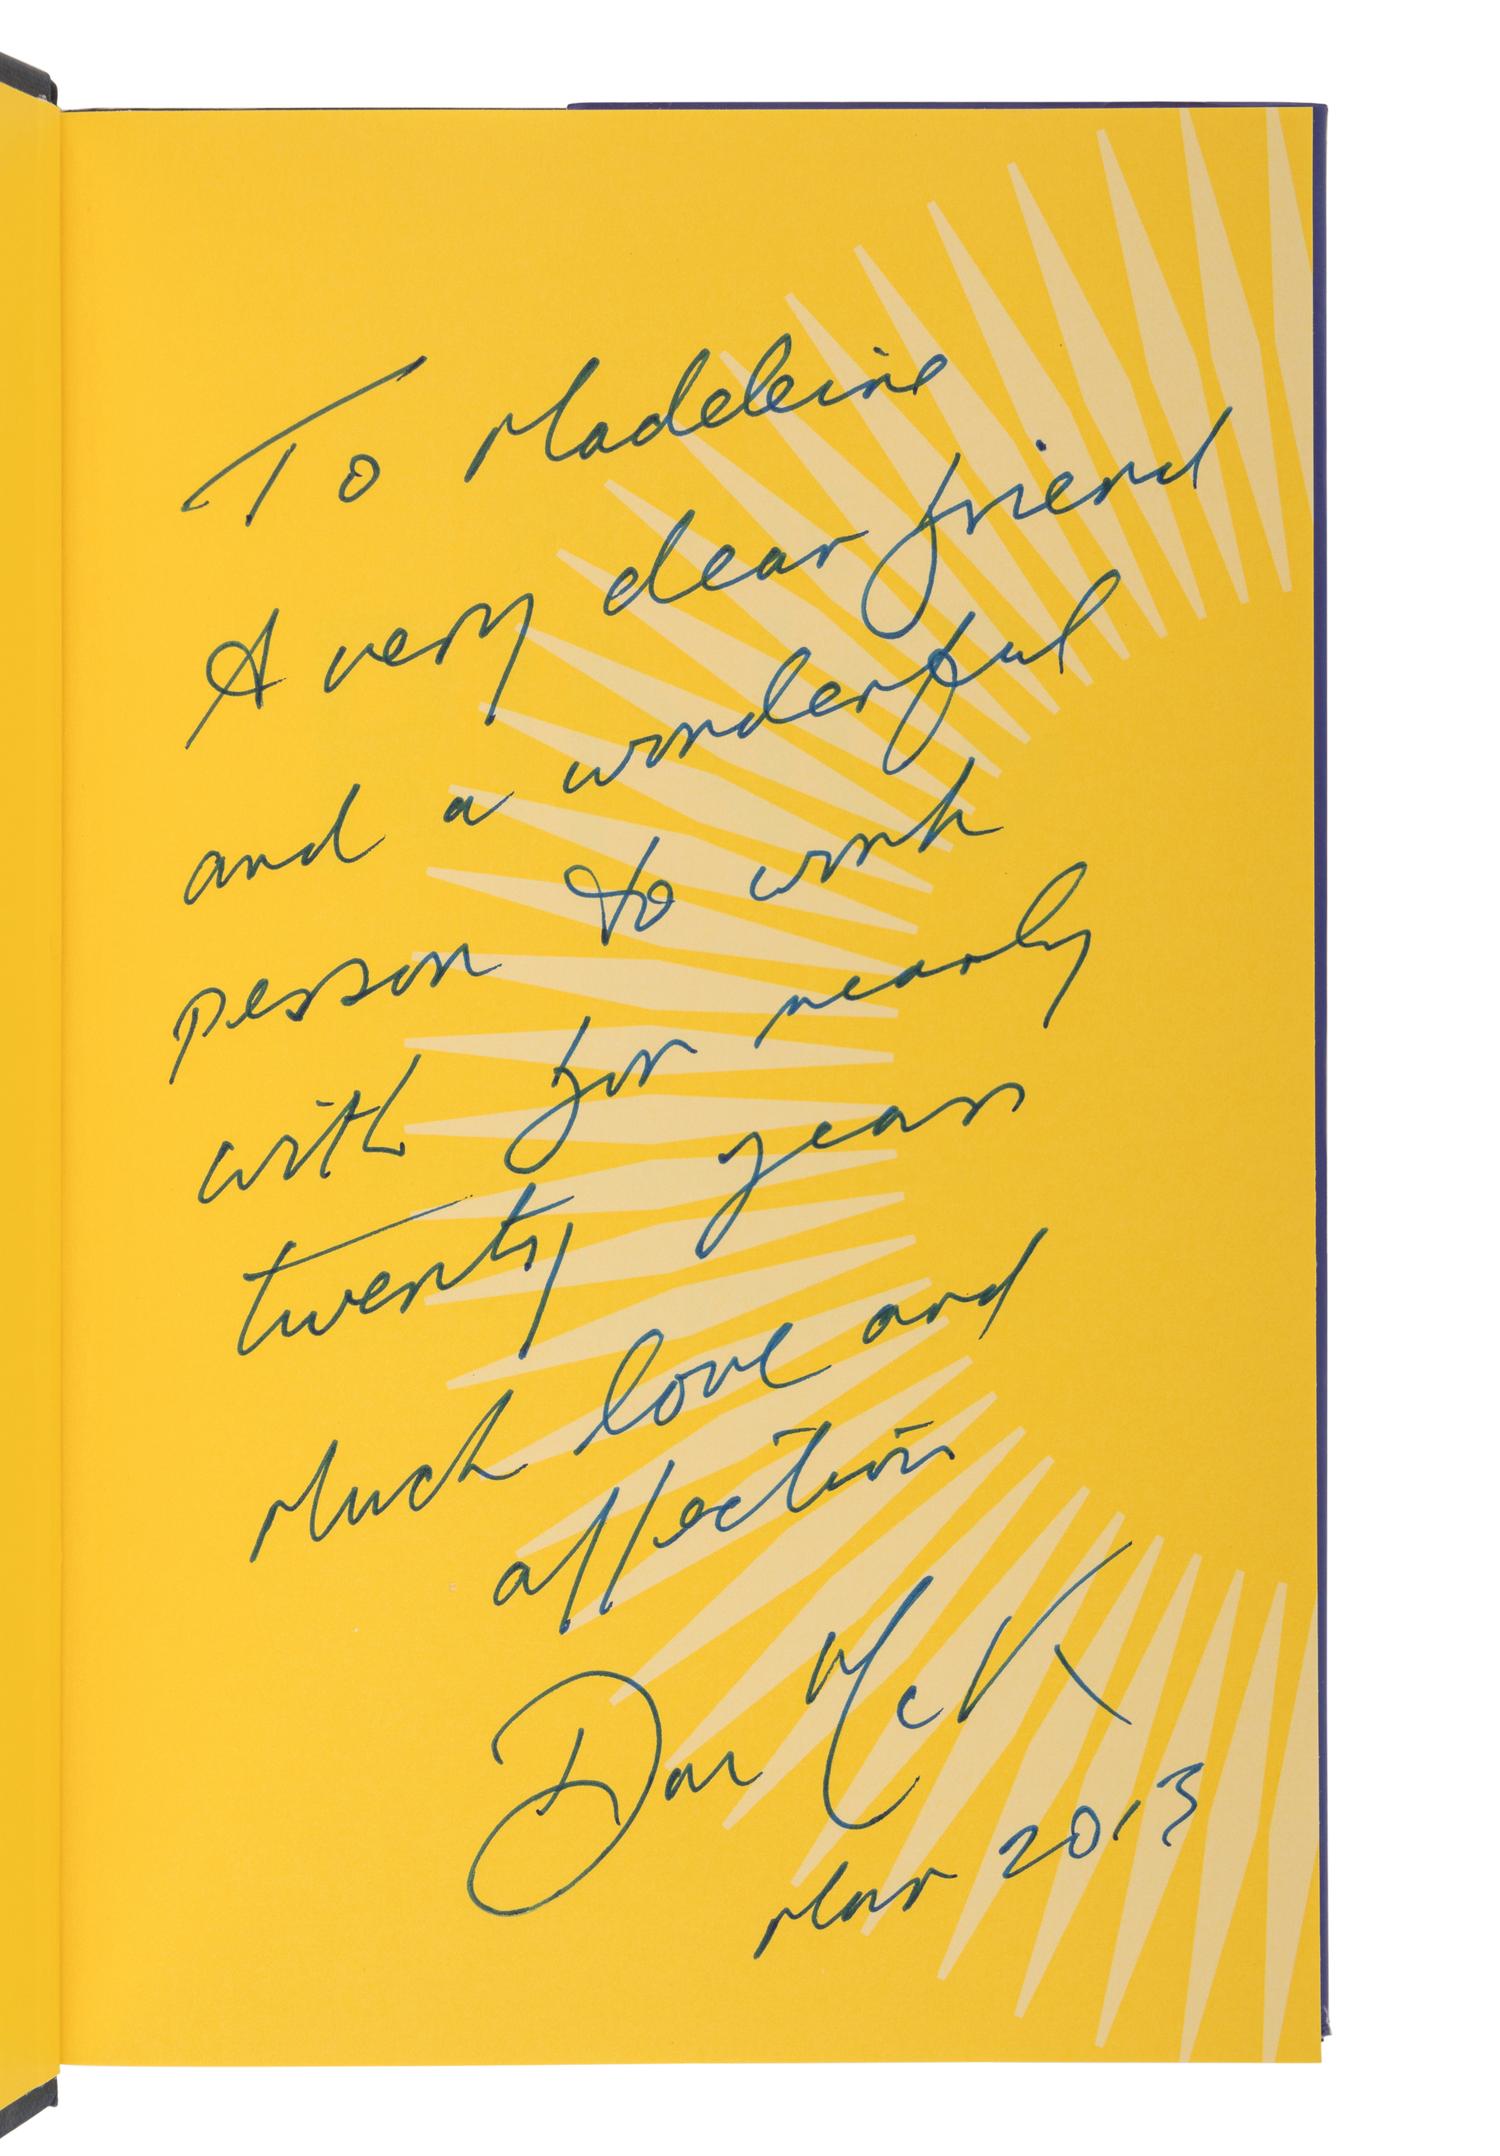 To Madeleine
A very dear friend
and a wonderful
person to work
with for nearly
twenty years
Much love and
affection
Dan McK
Mar 2013